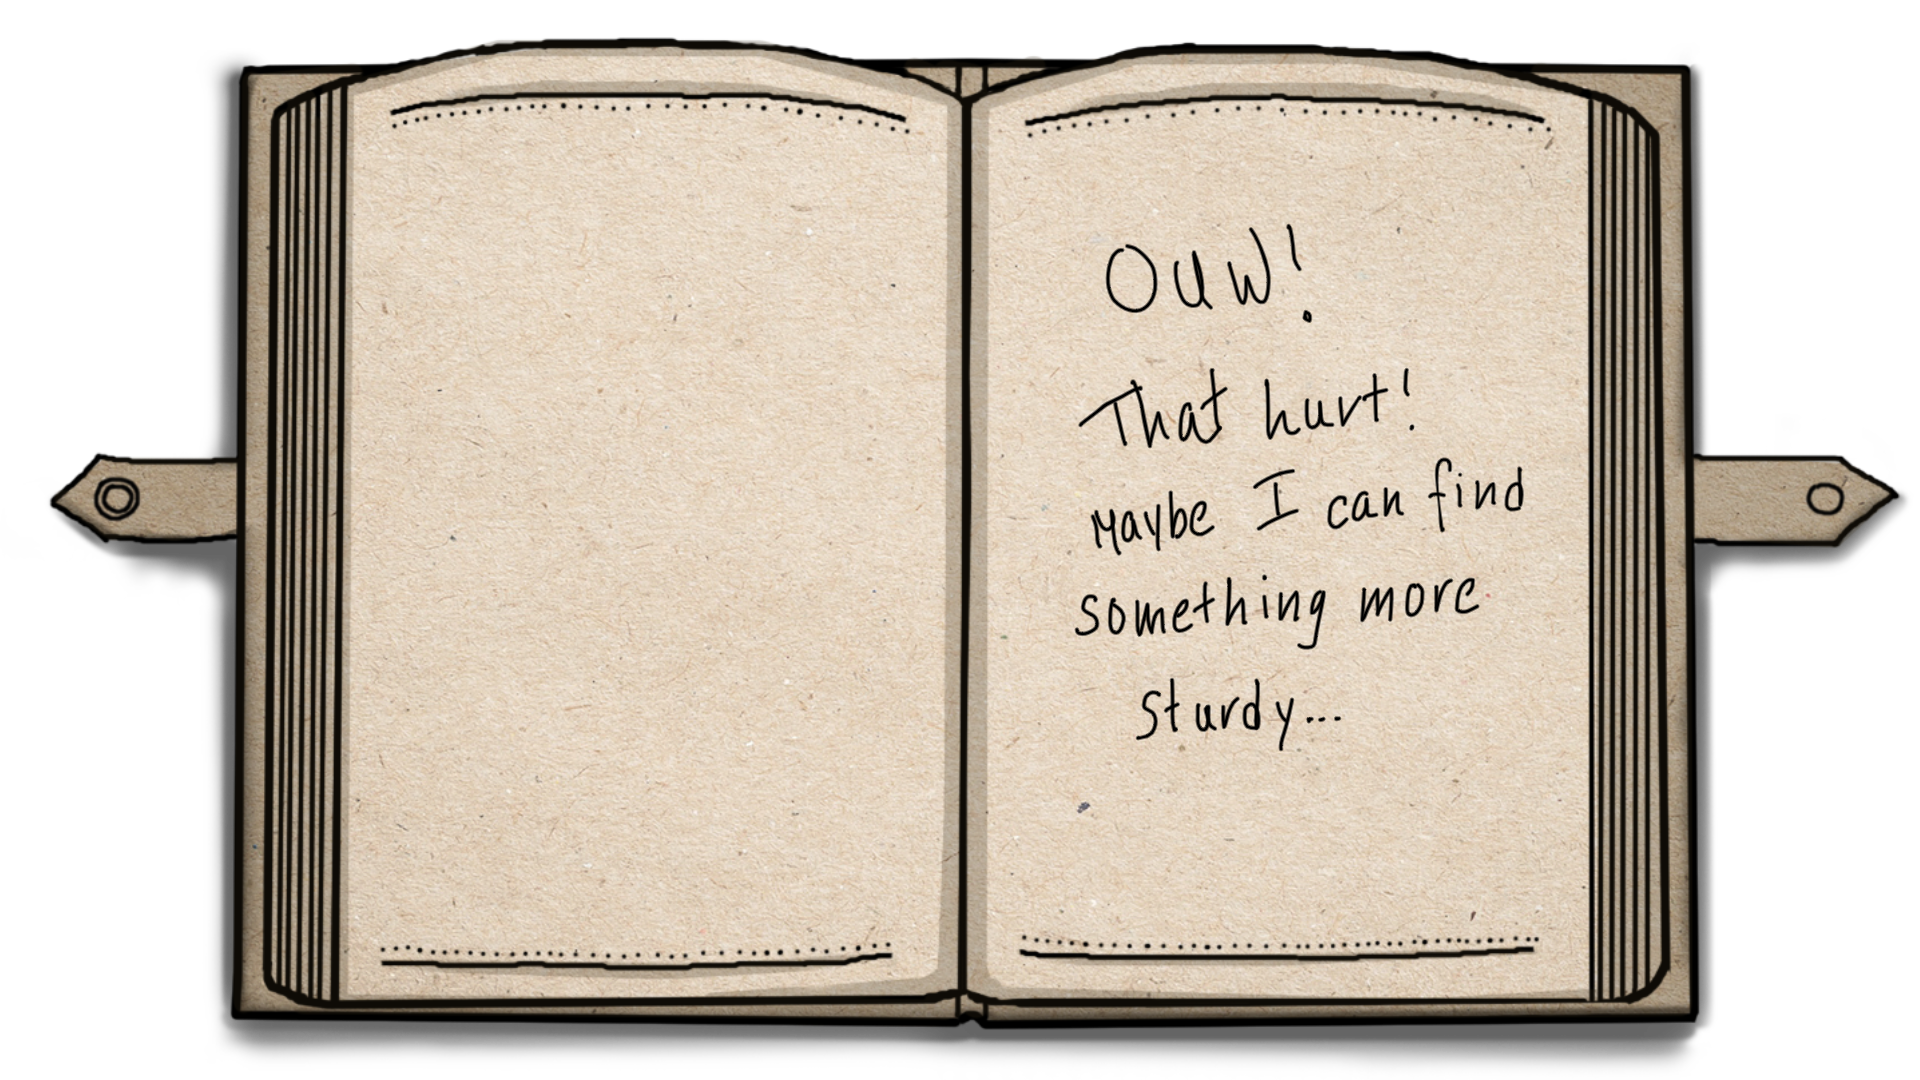 OUW!
That hurt!
Maybe I can find
something more
sturdy...